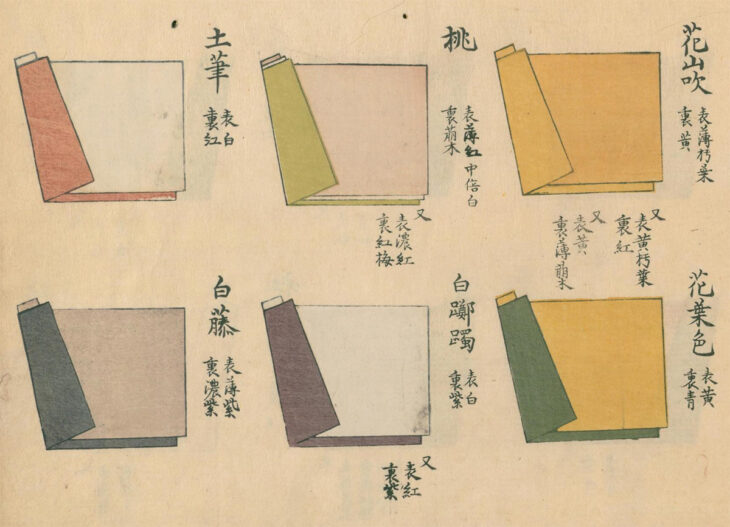 花山吹
表薄朽葉
裏黄
又
表黄朽葉
裏紅
又
表黄
裏薄萠木
桃
表薄紅 中倍白
裏萠木
又
表濃紅
裏紅梅
土筆
表白
裏紅
花葉色
表黄
裏青
白躑躅
表白
裏紫
又
表紅
裏紫
白藤
表薄紫
裏濃紫